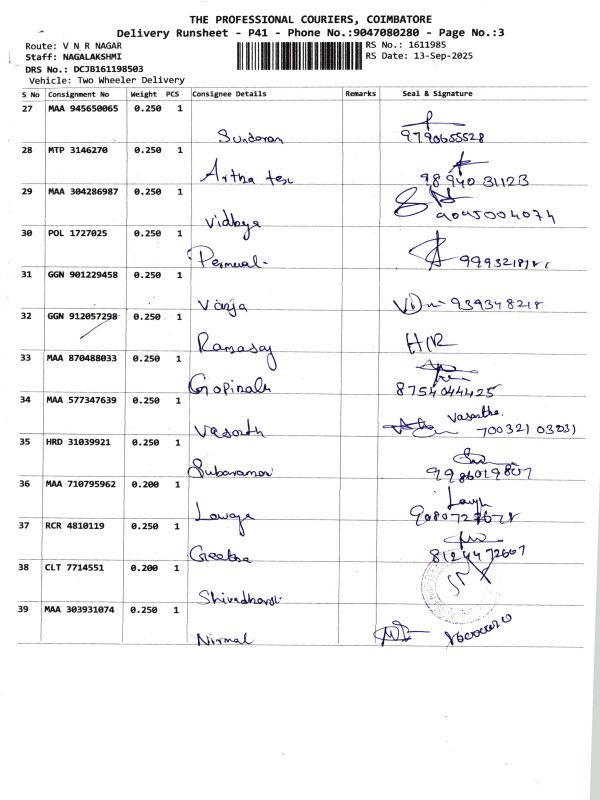 THE PROFESSIONAL COURIERS, COIMBATORE
Delivery Runsheet - P41 - Phone No.:9047080280 - Page No.:3
Route: V N R NAGAR
RS No.: 1611985
Staff: NAGALAKSHMI
RS Date: 13-Sep-2025
DRS No.: DCJB161198503
Vehicle: Two Wheeler Delivery
S No Consignment No Weight PCS Consignee Details Remarks Seal & Signature
27 MAA 945650065 0.250 1
Sundaran 9790655528
28 MTP 3146270 0.250 1
Artha tex 98940 31123
29 MAA 304286987 0.250 1
Vidhya 9095004074
30 POL 1727025 0.250 1
Permual
31 GGN 901229458 0.250 1
Vanja 939348218
32 GGN 912057298 0.250 1
Ramasay H/R
33 MAA 870488033 0.250 1
Gopinath 8754044425
34 MAA 577347639 0.250 1
Vasanth Vasantha.
35 HRD 31039921 0.250 1
Subaramani 9986019807
36 MAA 710795962 0.200 1
Lavanya
37 RCR 4810119 0.250 1
Geetha 8124472607
38 CLT 7714551 0.200 1
Shivadharsi
39 MAA 303931074 0.250 1
Nirmal